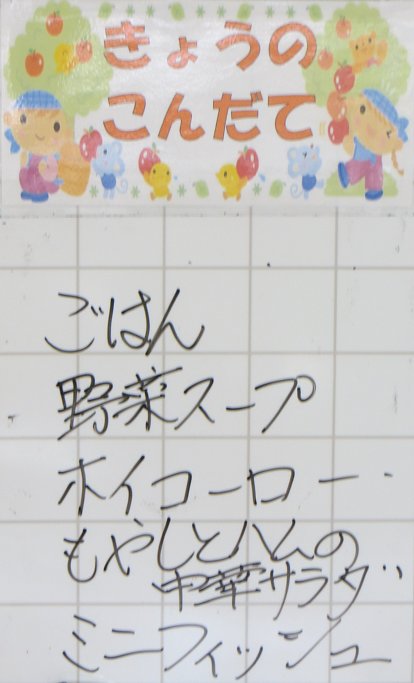 きょうの
こんだて
ごはん
野菜スープ
ホイコーロー
もやしとハムの
中華サラダ
ミニフィッシュ